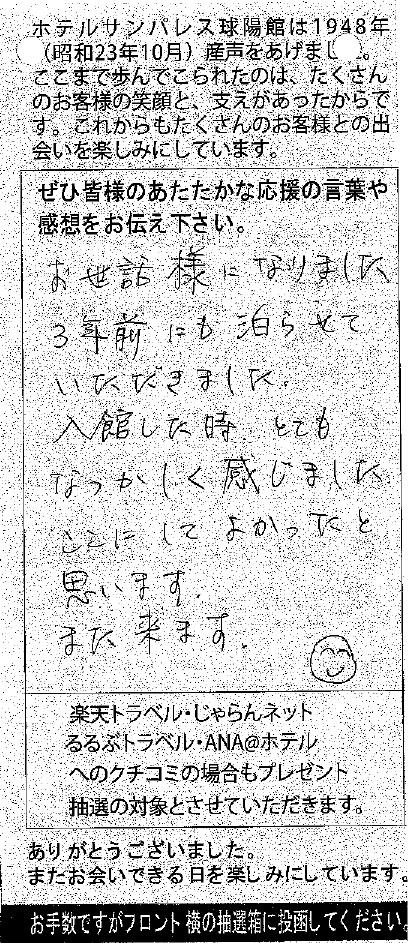 ホテルサンパレス球陽館は1948年
(昭和23年10月)産声をあげまし。
ここまで歩んでこられたのは、たくさん
のお客様の笑顔と、支えがあったからで
す。これからもたくさんのお客様との出
会いを楽しみにしています。
ぜひ皆様のあたたかな応援の言葉や
感想をお伝え下さい。
お世話様になりました
3年前にも泊らせて
いただきました.
入館した時、とても
なつかしく感じました
ここにしてよかったと
思います.
また来ます.
楽天トラベル・じゃらんネット
るるぶトラベル・ANA@ホテル
へのクチコミの場合もプレゼント
抽選の対象とさせていただきます。
ありがとうございました。
またお会いできる日を楽しみにしています。
お手数ですがフロント横の抽選箱に投函してください。